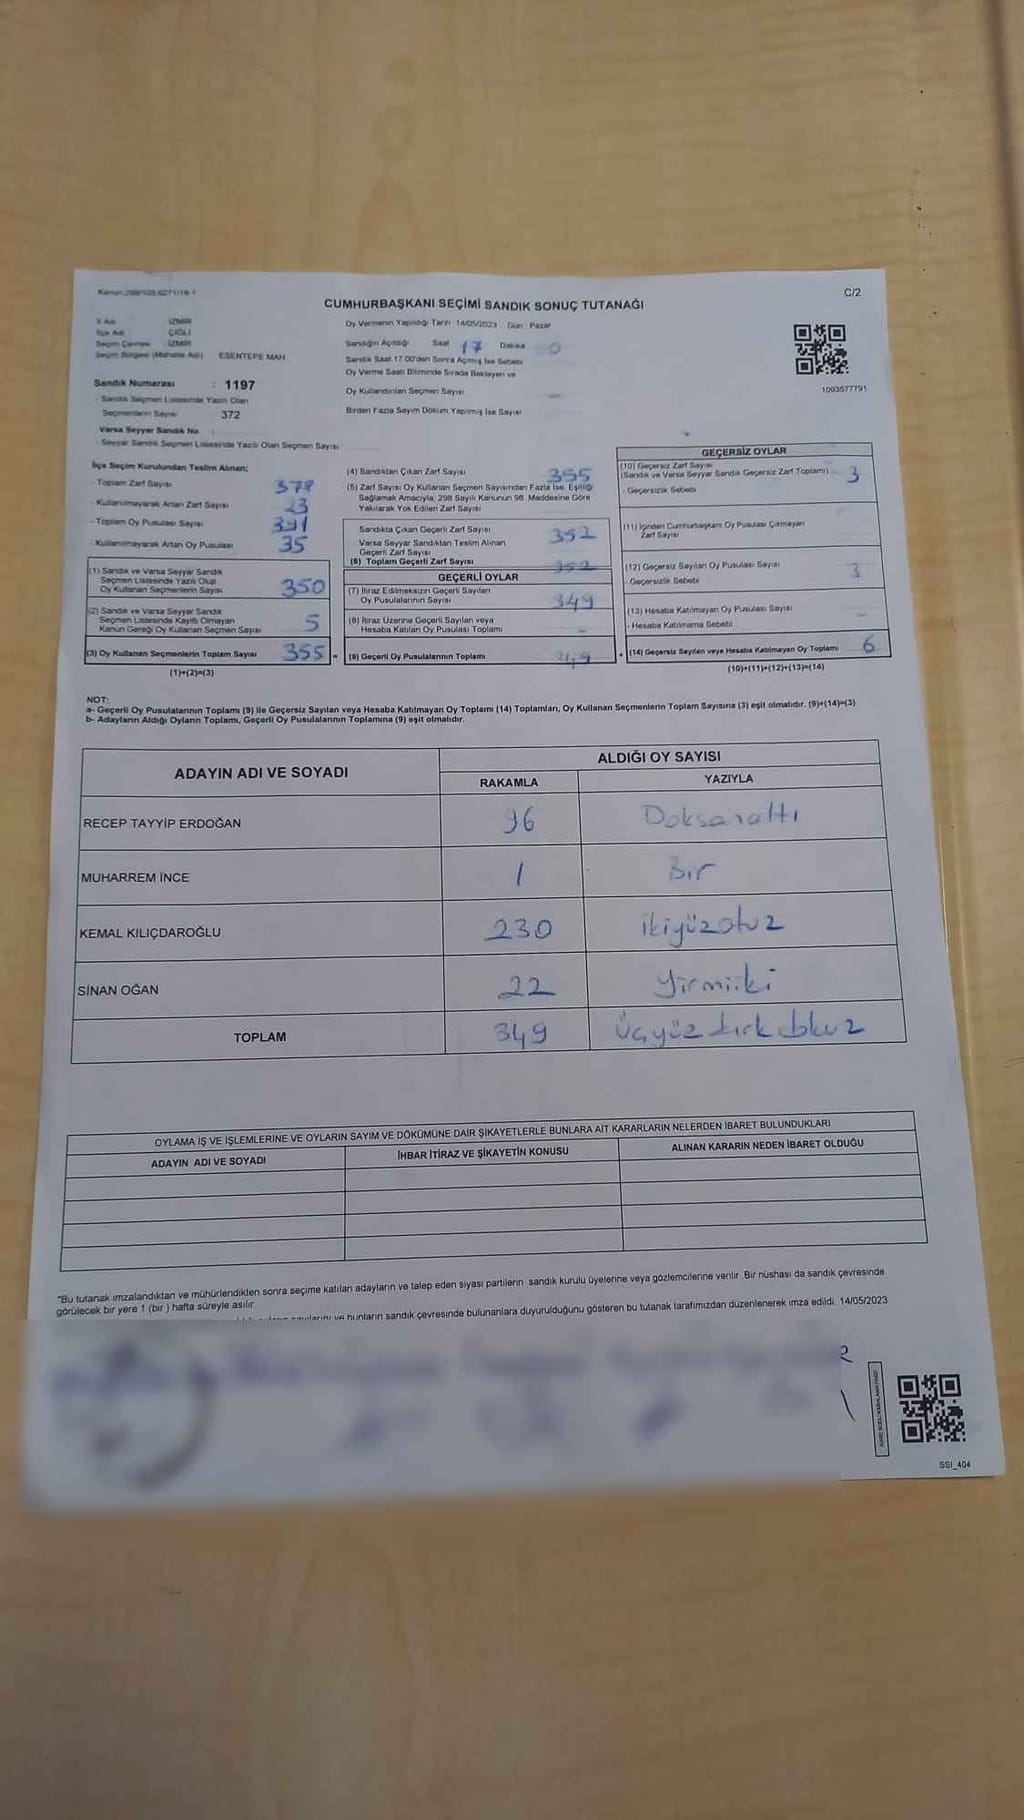 Kanun:298/103,6271/19-1
C/2
CUMHURBAŞKANI SEÇİMİ SANDIK SONUÇ TUTANAĞI
İl Adı : İZMİR
İlçe Adı : ÇİĞLİ
Seçim Çevresi : İZMİR
Seçim Bölgesi (Mahalle Adı) : ESENTEPE MAH
Sandık Numarası : 1197
- Sandık Seçmen Listesinde Yazılı Olan
Seçmenlerin Sayısı 372
Varsa Seyyar Sandık No :
- Seyyar Sandık Seçmen Listesinde Yazılı Olan Seçmen Sayısı
Oy Vermenin Yapıldığı Tarih 14/05/2023 Gün: Pazar
Sandığın Açıldığı Saat 17 Dakika 0
Sandık Saat 17:00'den Sonra Açılmış İse Sebebi
Oy Verme Saati Bitiminde Sırada Bekleyen ve
Oy Kullandırılan Seçmen Sayısı —
Birden Fazla Sayım Döküm Yapılmış İse Sayısı
1003577791
İlçe Seçim Kurulundan Teslim Alınan;
- Toplam Zarf Sayısı
- Kullanılmayarak Artan Zarf Sayısı 23
- Toplam Oy Pusulası Sayısı
- Kullanılmayarak Artan Oy Pusulası 35
(1) Sandık ve Varsa Seyyar Sandık
Seçmen Listesinde Yazılı Olup
Oy Kullanan Seçmenlerin Sayısı 350
(2) Sandık ve Varsa Seyyar Sandık
Seçmen Listesinde Kayıtlı Olmayan
Kanun Gereği Oy Kullanan Seçmen Sayısı 5
(3) Oy Kullanan Seçmenlerin Toplam Sayısı 355 =
(1)+(2)=(3)
(4) Sandıktan Çıkan Zarf Sayısı 355
(5) Zarf Sayısı Oy Kullanan Seçmen Sayısından Fazla İse, Eşitliği
Sağlamak Amacıyla, 298 Sayılı Kanunun 98. Maddesine Göre
Yakılarak Yok Edilen Zarf Sayısı
Sandıkta Çıkan Geçerli Zarf Sayısı 352
Varsa Seyyar Sandıktan Teslim Alınan
Geçerli Zarf Sayısı
(6) Toplam Geçerli Zarf Sayısı 352
GEÇERLİ OYLAR
(7) İtiraz Edilmeksizin Geçerli Sayılan
Oy Pusulalarının Sayısı 349
(8) İtiraz Üzerine Geçerli Sayılan veya
Hesaba Katılan Oy Pusulası Toplamı —
(9) Geçerli Oy Pusulalarının Toplamı 349 +
GEÇERSİZ OYLAR
(10) Geçersiz Zarf Sayısı
(Sandık ve Varsa Seyyar Sandık Geçersiz Zarf Toplamı) 3
- Geçersizlik Sebebi
(11) İçinden Cumhurbaşkanı Oy Pusulası Çıkmayan
Zarf Sayısı
(12) Geçersiz Sayılan Oy Pusulası Sayısı 3
- Geçersizlik Sebebi
(13) Hesaba Katılmayan Oy Pusulası Sayısı —
- Hesaba Katılmama Sebebi
(14) Geçersiz Sayılan veya Hesaba Katılmayan Oy Toplamı 6
(10)+(11)+(12)+(13)=(14)
NOT:
a- Geçerli Oy Pusulalarının Toplamı (9) ile Geçersiz Sayılan veya Hesaba Katılmayan Oy Toplamı (14) Toplamları, Oy Kullanan Seçmenlerin Toplam Sayısına (3) eşit olmalıdır. (9)+(14)=(3)
b- Adayların Aldığı Oyların Toplamı, Geçerli Oy Pusulalarının Toplamına (9) eşit olmalıdır.
ADAYIN ADI VE SOYADI ALDIĞI OY SAYISI
RAKAMLA YAZIYLA
RECEP TAYYİP ERDOĞAN 96 Doksanaltı
MUHARREM İNCE 1 Bir
KEMAL KILIÇDAROĞLU 230 ikiyüzotuz
SİNAN OĞAN 22 yirmiiki
TOPLAM 349 Üçyüz kırk dokuz
OYLAMA İŞ VE İŞLEMLERİNE VE OYLARIN SAYIM VE DÖKÜMÜNE DAİR ŞİKAYETLERLE BUNLARA AİT KARARLARIN NELERDEN İBARET BULUNDUKLARI
ADAYIN ADI VE SOYADI İHBAR İTİRAZ VE ŞİKAYETİN KONUSU ALINAN KARARIN NEDEN İBARET OLDUĞU
"Bu tutanak imzalandıktan ve mühürlendikten sonra seçime katılan adayların ve talep eden siyasi partilerin sandık kurulu üyelerine veya gözlemcilerine verilir. Bir nüshası da sandık çevresinde
görülecek bir yere 1 (bir ) hafta süreyle asılır.
ve bunların sandık çevresinde bulunanlara duyurulduğunu gösteren bu tutanak tarafımızdan düzenlenerek imza edildi. 14/05/2023
SSI_404